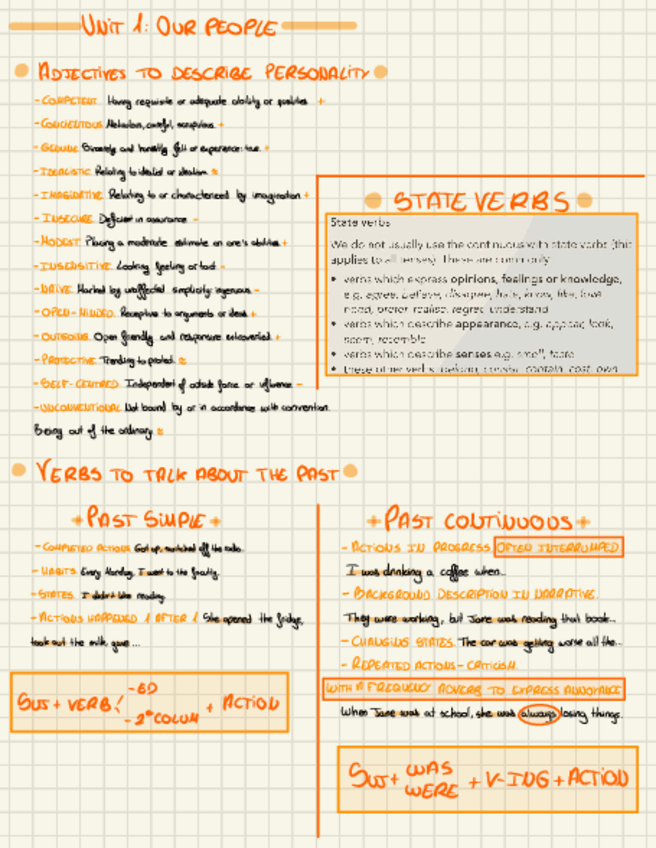 UNIT 1: OUR PEOPLE
ADJECTIVES TO DESCRIBE PERSONALITY
-COMPETENT Having requisite or adequate ability or qualities +
-CONCIENTOUS Meticulous, careful, scrupulous +
-GENUINE Sincerely and honestly felt or experience: true +
-IDEALISTIC Relating to idealist or idealism ±
-IMAGINATIVE Relating to or characterienced by imagination +
-INSECURE Deficient in assurance -
-MODEST Placing a moderate estimate on one's abilities +
-INSENSITIVE Lacking feeling or tact -
-NAIVE Marked by unaffected simplicity: ingenuous -
-OPEN-MINDED Receptive to arguments or ideas +
-OUTGOING Open friendly and responsive extroverted +
-PROTECTIVE Trending to protect ±
-SELF-CENTRED Independent of outside force or influence -
-UNCONVENTIONAL Not bound by or in accordance with convention
Being out of the ordinary ±
STATE VERBS
State verbs
We do not usually use the continuous with state verbs (this
applies to all tenses). These are commonly:
• verbs which express opinions, feelings or knowledge,
e.g. agree, believe, disagree, hate, know, like, love
need, prefer, realise, regret, understand
• verbs which describe appearance, e.g. appear, look,
seem, resemble
• verbs which describe senses e.g. smell, taste
• these other verbs: belong, consist, contain, cost, own
VERBS TO TALK ABOUT THE PAST
PAST SIMPLE
-COMPLETED ACTIONS Got up, switched off the radio.
-HABITS Every Monday, I went to the faculty.
-STATES I didn't like reading
-ACTIONS HAPPENED 1 AFTER 1 She opened the fridge,
took out the milk, gave...
SUJ + VERB
-ED
-2ª COLUM
+ ACTION
PAST CONTINUOUS
-ACTIONS IN PROGRESS OFTEN INTERRUMPED
I was drinking a coffee when...
-BACKGROUND DESCRIPTION IN NARRATIVE.
They were working, but Jane was reading that book...
-CHANGING STATES. The car was getting worse all the...
-REPEATED ACTIONS - CRITICISM.
WITH A FREQUENCY ADVERB TO EXPRESS ANNOYANCE
When Jane was at school, she was always losing things.
SUJ + WAS
WERE
+ V-ING + ACTION